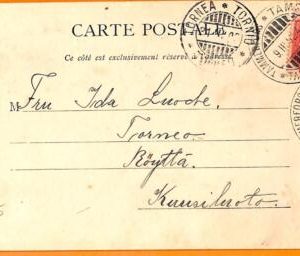 CARTE POSTALE
TORNEA * TORNIO
Ce côté est exclusivement réservé à l'adresse.
M Fru Ida Luoche.
Torneo
Röyttä
Kuusiluoto.